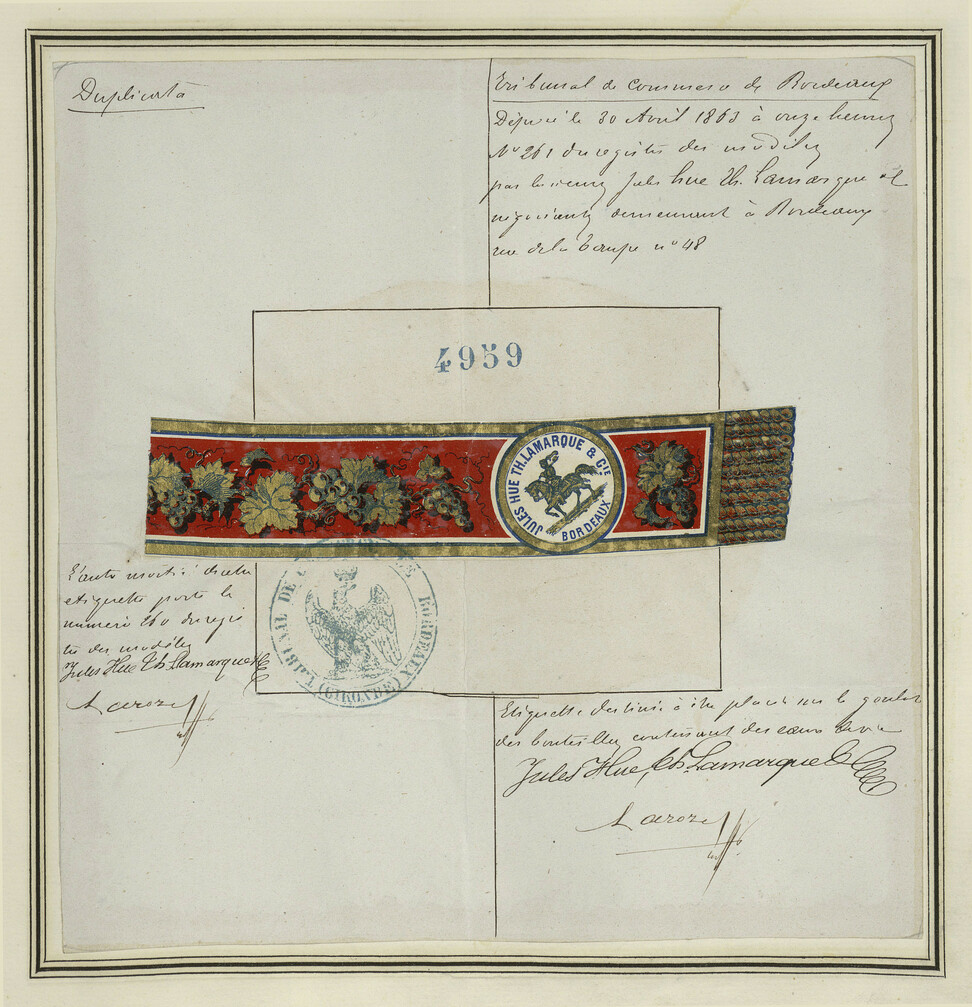 Duplicata
Tribunal de Commerce de Bordeaux
Déposé le 30 Avril 1863 à onze heures
N° 261 du registre des modèles
par les sieurs Jules Hue Th. Lamarque et
négociants demeurant à Bordeaux
rue de la Taupe n° 48
4959
JULES HUE TH. LAMARQUE & CIE
BORDEAUX
TRIBUNAL DE COMMERCE BORDEAUX (GIRONDE)
L'autre moitié de cette
etiquette porte le
numéro 260 du regis
tre des modèles
Jules Hue Th Lamarque
Laroze
Etiquette destinée à être placée sur le goulot
des bouteilles contenant des eaux de vie
Jules Hue, Th. Lamarque &
Laroze